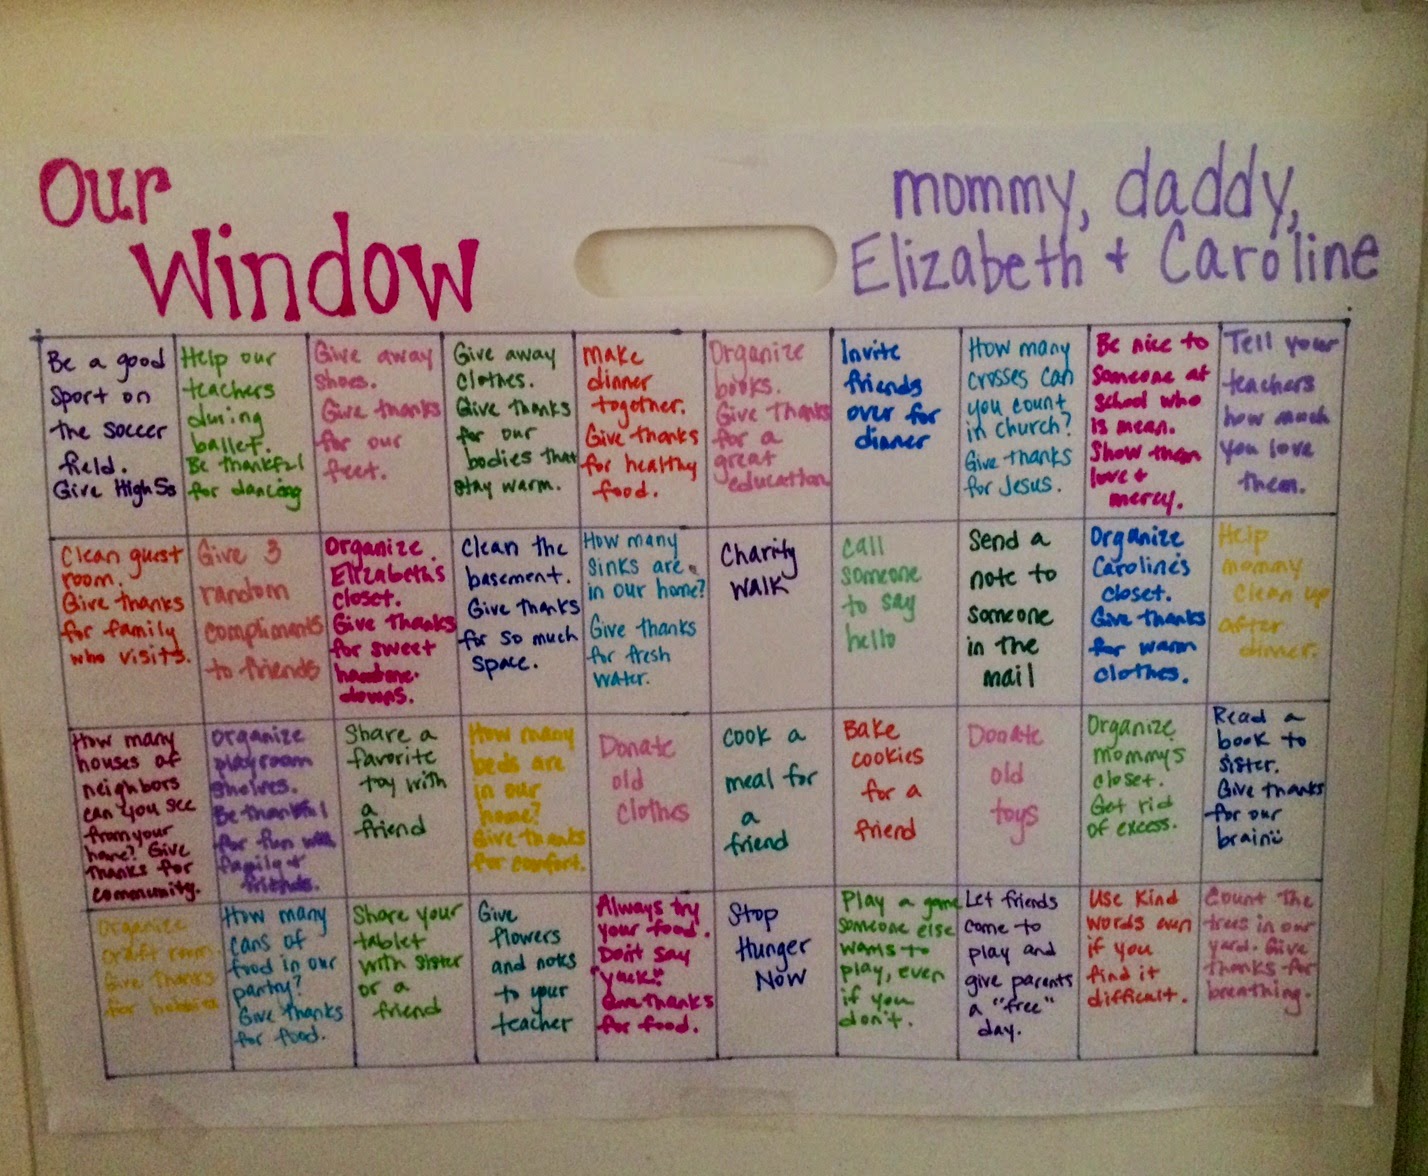 Our
Window
mommy, daddy,
Elizabeth + Caroline
Be a good
sport on
the soccer
field.
Give High 5s
Help our
teachers
during
ballet.
Be thankful
for dancing
Give away
shoes.
Give thanks
for our
feet.
Give away
clothes.
Give thanks
for our
bodies that
stay warm.
Make
dinner
together.
Give thanks
for healthy
food.
Organize
books.
Give thanks
for a
great
education
Invite
friends
over for
dinner
How many
crosses can
you count
in church?
Give thanks
for Jesus.
Be nice to
someone at
school who
is mean.
Show them
love +
mercy.
Tell your
teachers
how much
you love
them.
Clean guest
room.
Give thanks
for family
who visits.
Give 3
random
compliments
to friends
Organize
Elizabeth's
closet.
Give thanks
for sweet
hand-me-
downs.
Clean the
basement.
Give thanks
for so much
space.
How many
sinks are
in our home?
Give thanks
for fresh
water.
Charity
Walk
Call
someone
to say
hello
Send a
note to
someone
in the
mail
Organize
Caroline's
closet.
Give thanks
for warm
clothes.
Help
mommy
clean up
after
dinner.
How many
houses of
neighbors
can you see
from your
home? Give
thanks for
community.
Organize
playroom
shelves.
Be thankful
for fun with
family +
friends.
Share a
favorite
toy with
a
friend
How many
beds are
in our
home?
Give thanks
for comfort.
Donate
old
clothes
Cook a
meal for
a
friend
Bake
cookies
for a
friend
Donate
old
toys
Organize
mommy's
closet.
Get rid
of excess.
Read a
book to
sister.
Give thanks
for our
brain
Organize
craft room.
Give thanks
for hobbies
How many
cans of
food in our
pantry?
Give thanks
for food.
Share your
tablet
with sister
or a
friend
Give
flowers
and notes
to your
teacher
Always try
your food.
Don't say
"yuck."
Give thanks
for food.
Stop
Hunger
Now
Play a game
someone else
wants to
play, even
if you
don't.
Let friends
come to
play and
give parents
a "free"
day.
Use kind
words even
if you
find it
difficult.
Count the
trees in our
yard. Give
thanks for
breathing.